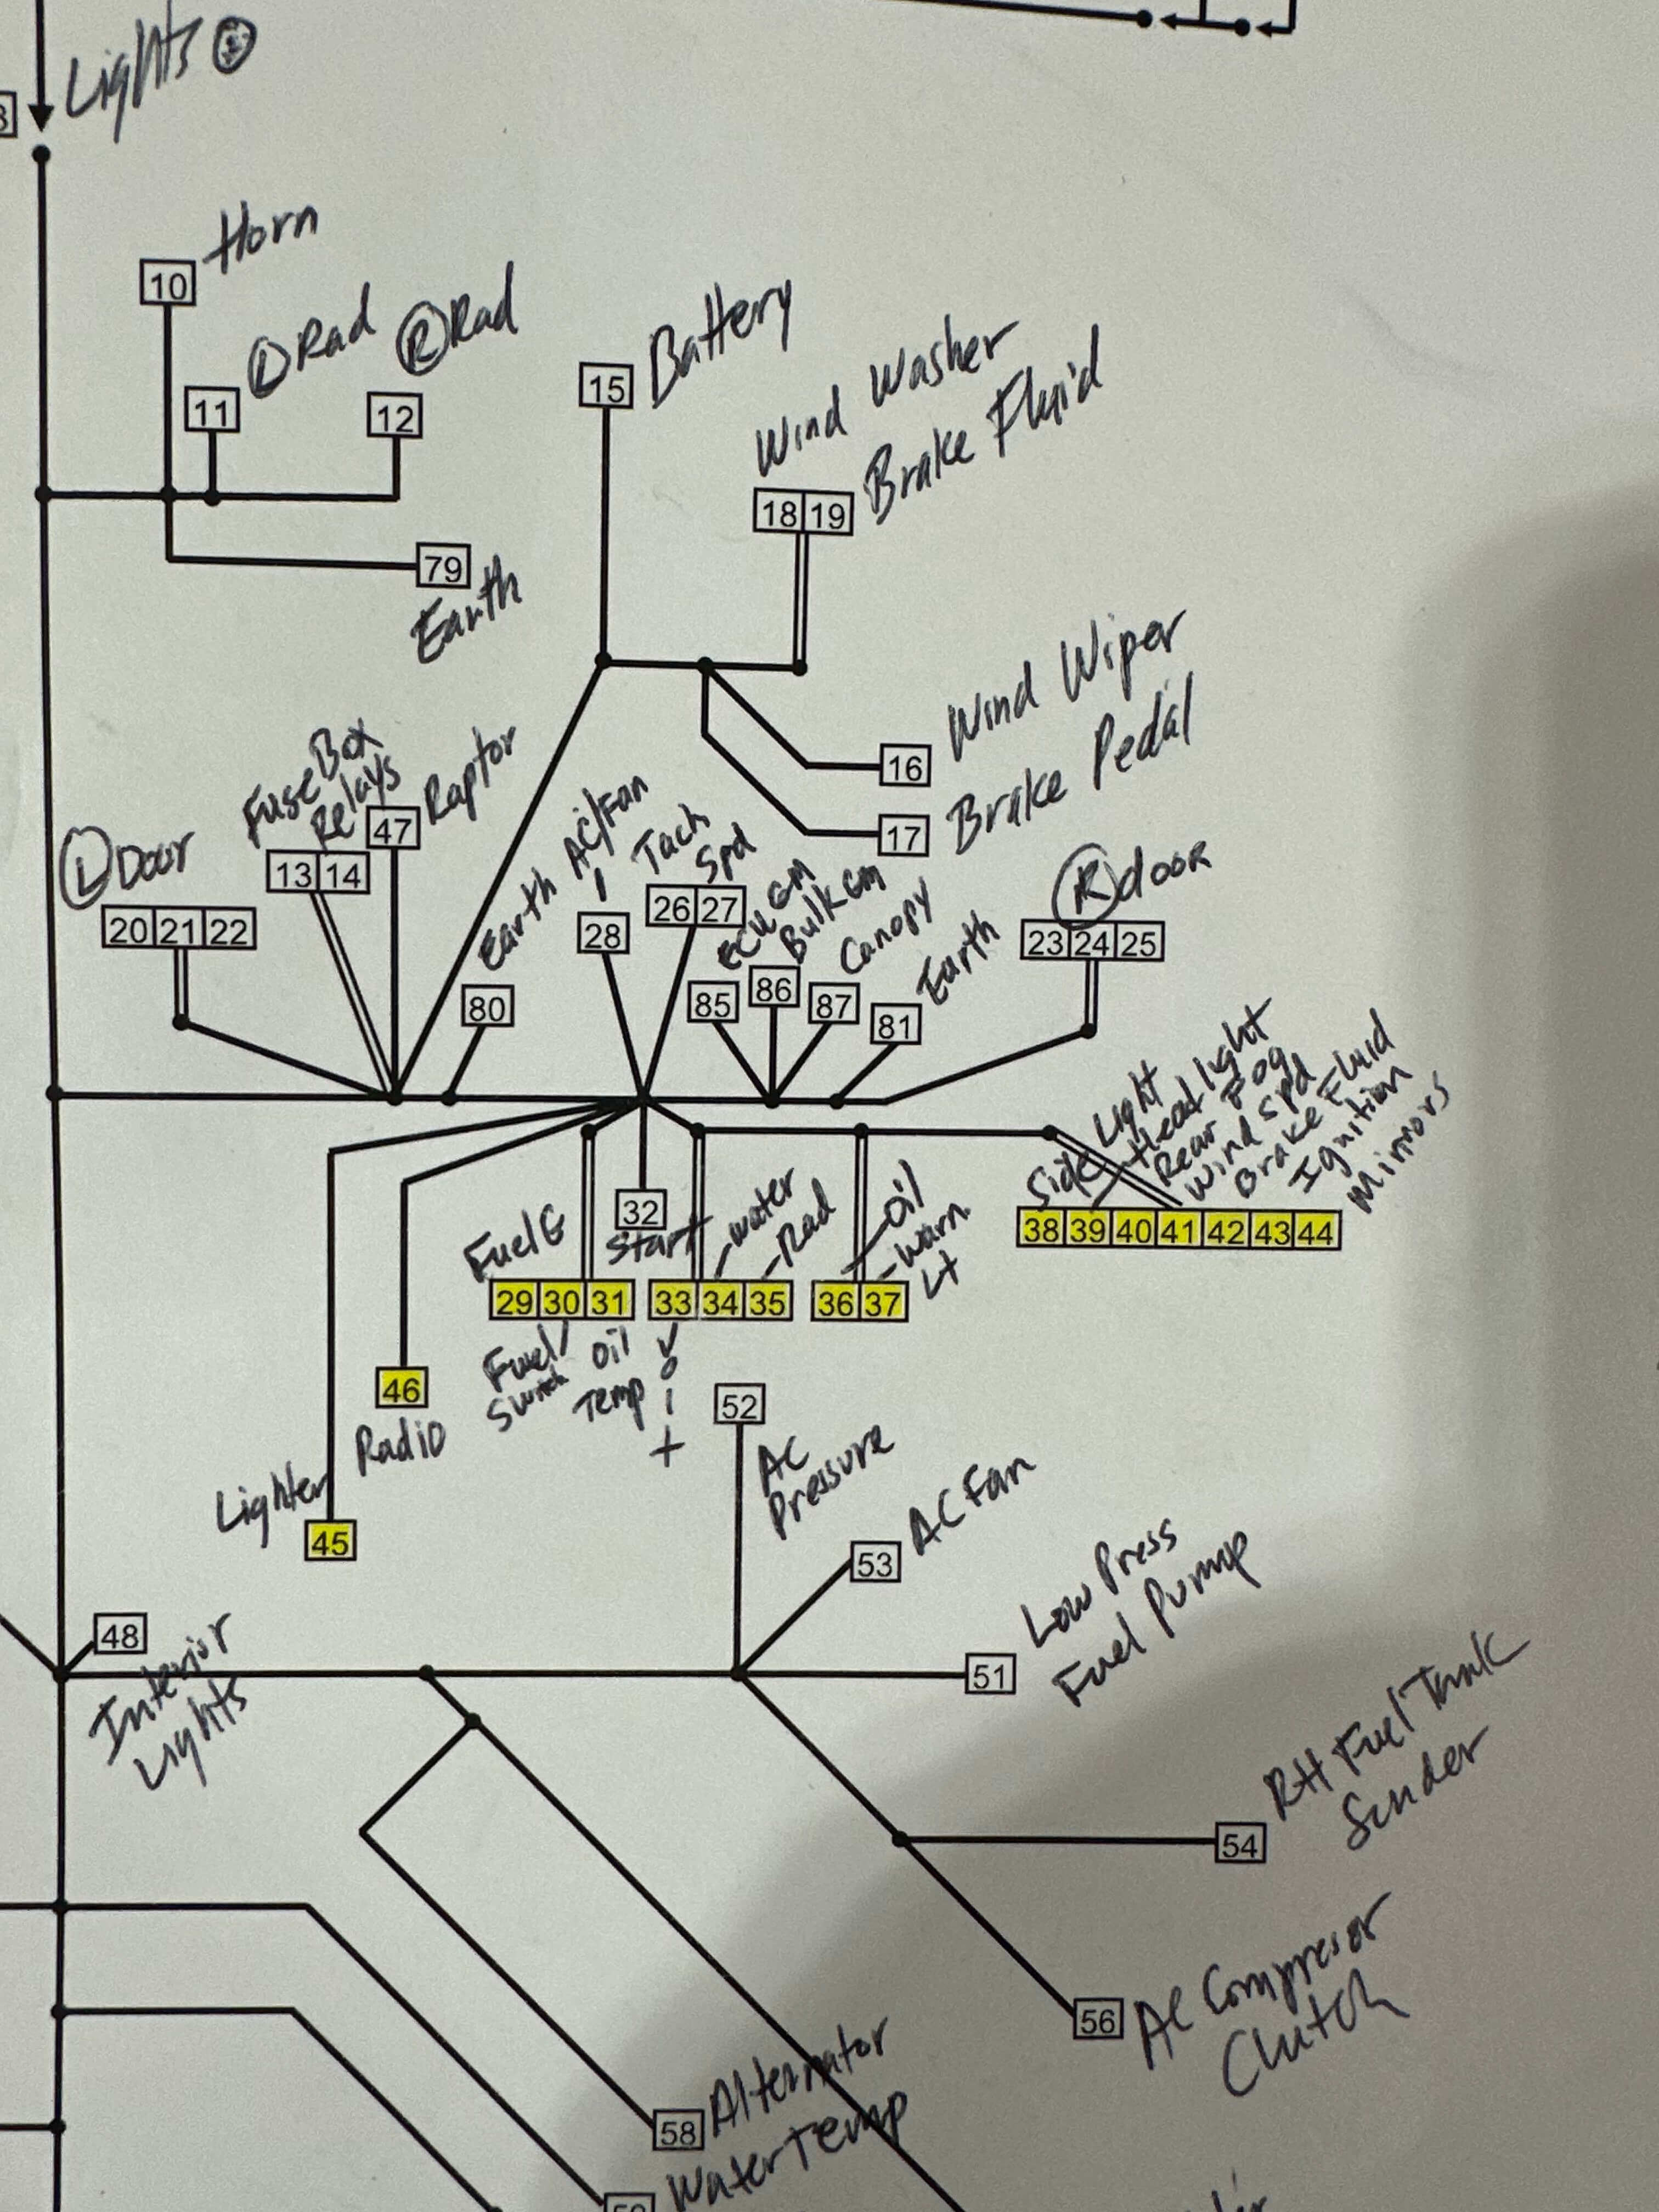 Lights R
10 Horn
11 L Rad
12 R Rad
79
Earth
15 Battery
Wind Washer
Brake Fluid
18 19
16 Wind Wiper
17 Brake Pedal
L Door
20 21 22
Fuse Box
Relays
13 14
47 Raptor
Earth
80
AC/Fan
28
Tach
Spd
26 27
ECU GM
85
Bulk GM
86
Canopy
87
Earth
81
R door
23 24 25
Side Light
Headlight
Rear Fog
Wind Spd
Brake Fluid
Ignition
Mirrors
38 39 40 41 42 43 44
Fuel G
29 30 31
Fuel
Switch
Oil
Temp
32
Start
water
Rad
33 34 35
Volt
Oil
Warn
Lt
36 37
46
Radio
Lighter
45
52
AC
Pressure
53 AC Fan
51 Low Press
Fuel Pump
48
Interior
Lights
54 RH Fuel Tank
Sender
56 AC Compresor
Clutch
58 Alternator
Water Temp